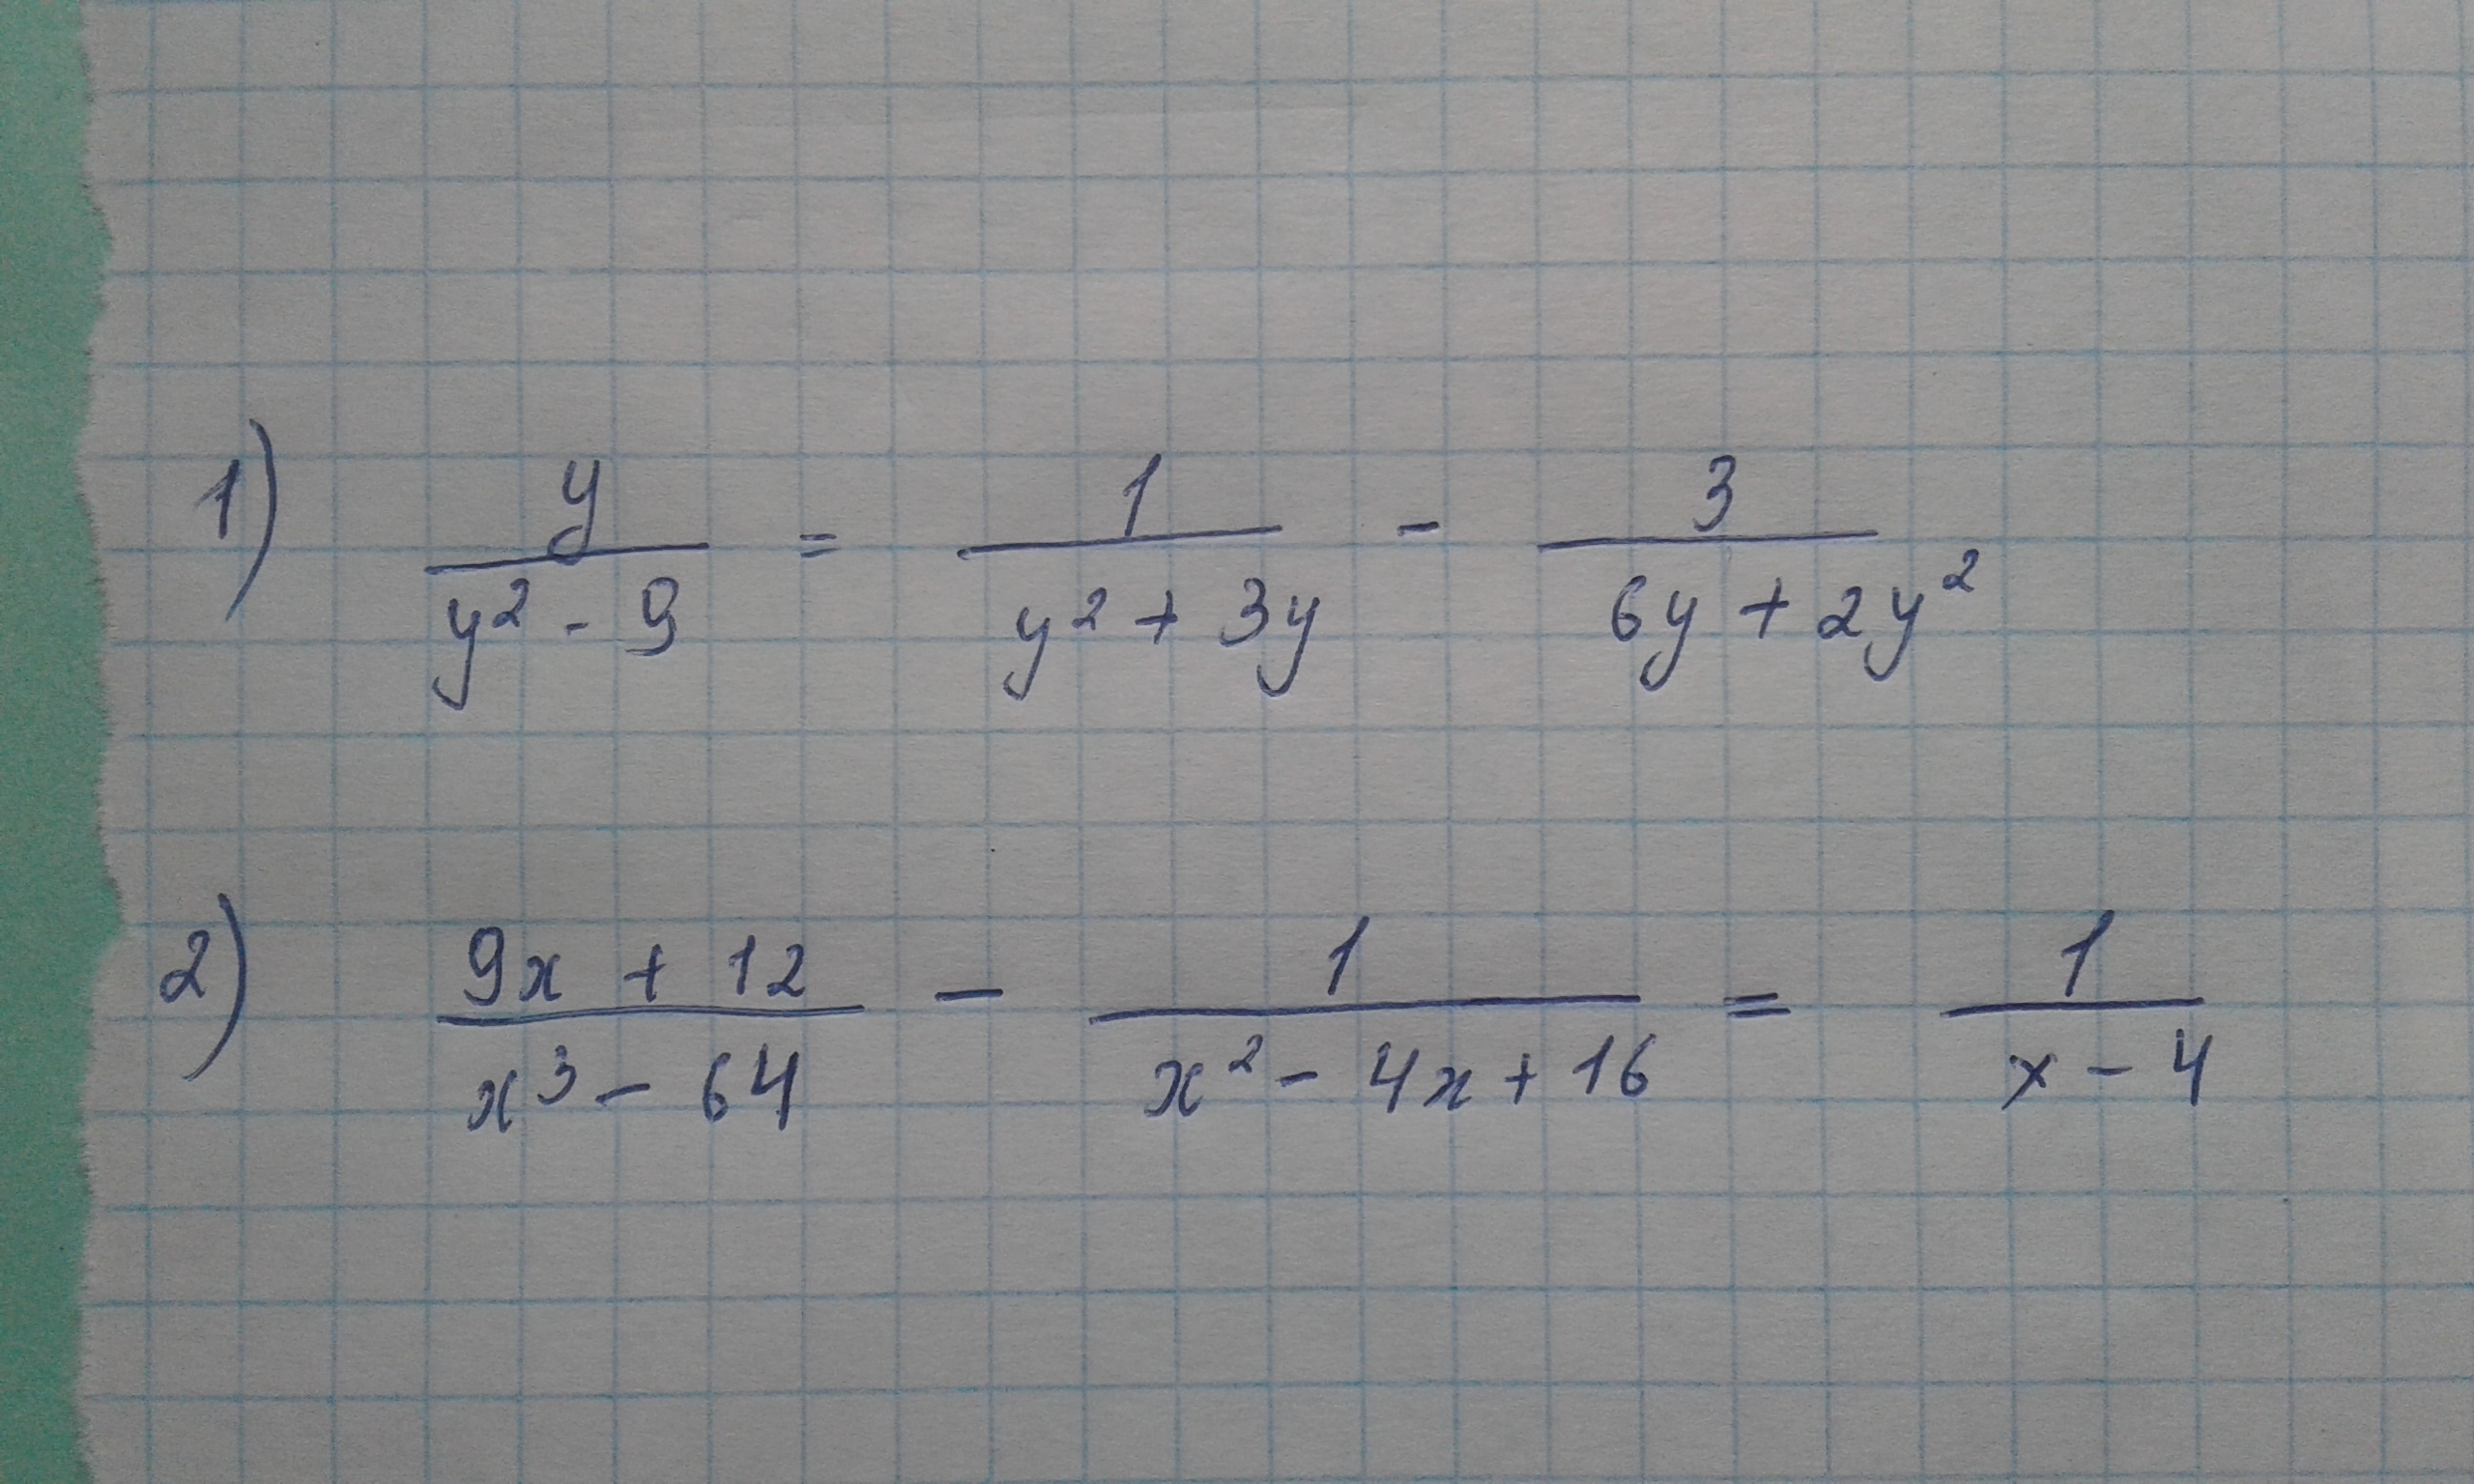 1) y/(y² - 9) = 1/(y² + 3y) - 3/(6y + 2y²)
2) (9x + 12)/(x³ - 64) - 1/(x² - 4x + 16) = 1/(x - 4)